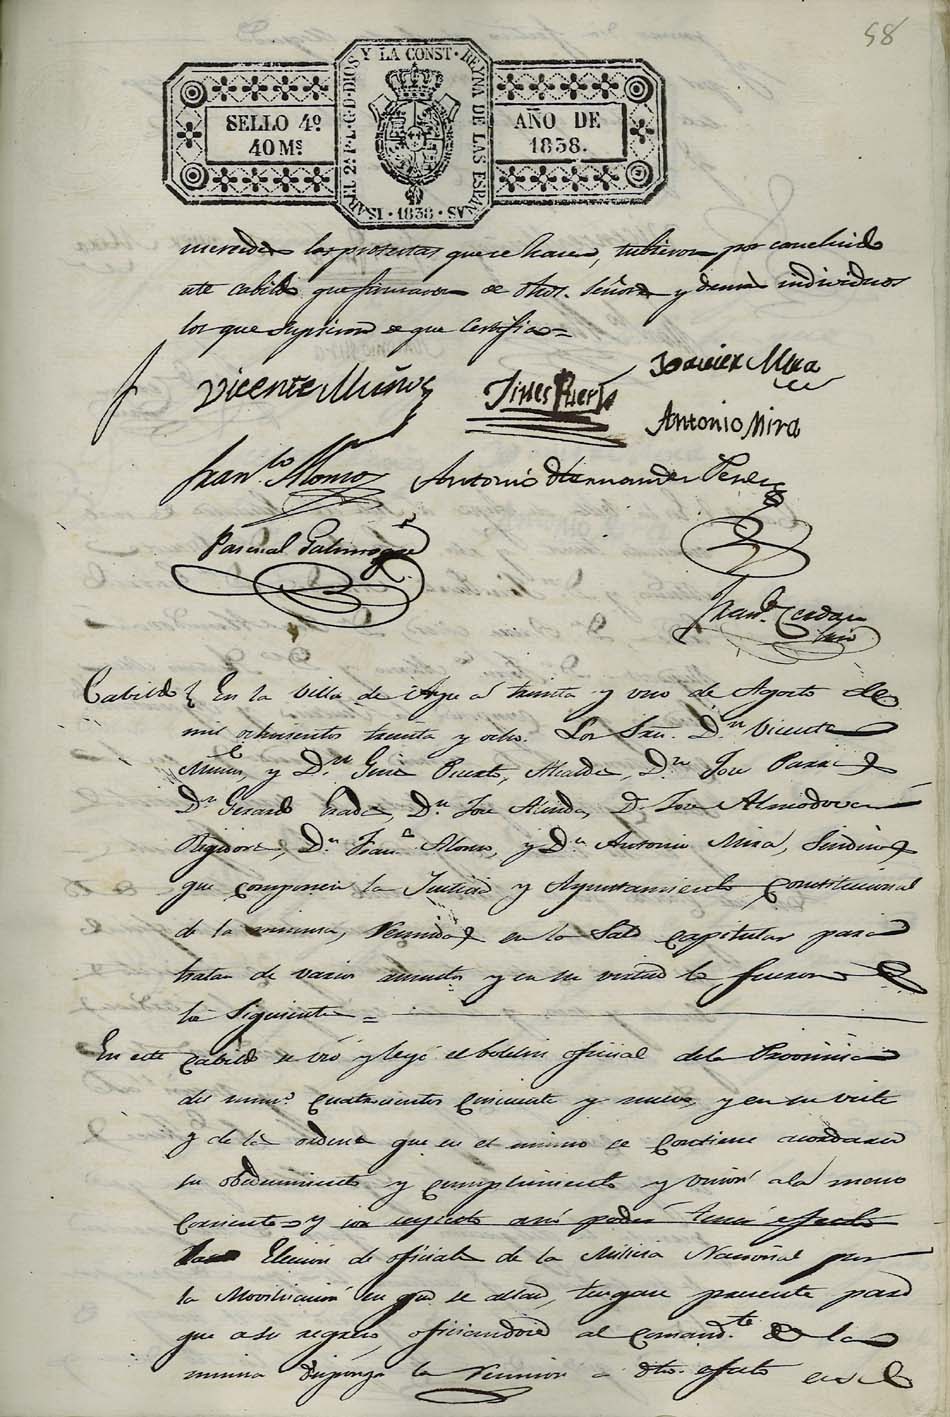 58
SELLO 4º
40 Mˢ
ISABEL 2ª P. L. G. D. DIOS Y LA CONST. REYNA DE LAS ESPAÑAS
· 1838 ·
AÑO DE
1838.
las protestas que se hacen, tubieron por concluido
este cabildo que firmaron de dhos. Señores y demas individuos
los que supieron de que Certifico =
Vicente Muñoz
Gines Puerto
Javier Mira
Antonio Mira
Franᶜᵒ Alonso
Antonio Hernandez Perez
Pascual
Franᶜᵒ Cerdan
Srio
Cabildo En la Villa de Aspe a treinta y uno de Agosto de
mil ochocientos treinta y ocho. Los Sres. Dⁿ Vicente
Muñoz, y Dⁿ Gines Puerto, Alcaldes, Dⁿ Jose
Dⁿ Gerardo Dⁿ Jose Dⁿ Jose Almodovar
Regidores, Dⁿ Franᶜᵒ Alonso, y Dⁿ Antonio Mira, Sindicos
que componen la Justicia y Ayuntamiento Constitucional
de la misma, Reunidos en la Sala capitular para
tratar de varios asuntos y en su virtud lo fueron
lo Siguiente =
En este cabildo se vió y leyó el boletin oficial de la Provincia
del numº cuatrocientos cincuenta y nueve, y en su vista
y de las ordenes que en el mismo se contiene acordaron
su obedecimiento y cumplimiento y union á la mano
corriente = y con respecto á no poder tener efecto
la Eleccion de oficiales de la Milicia Nacional por
la Movilizacion en que se allan, tengase presente para
que a su regreso, oficiandose al Comandᵗᵉ de la
misma disponga la Reunion a dho. efecto